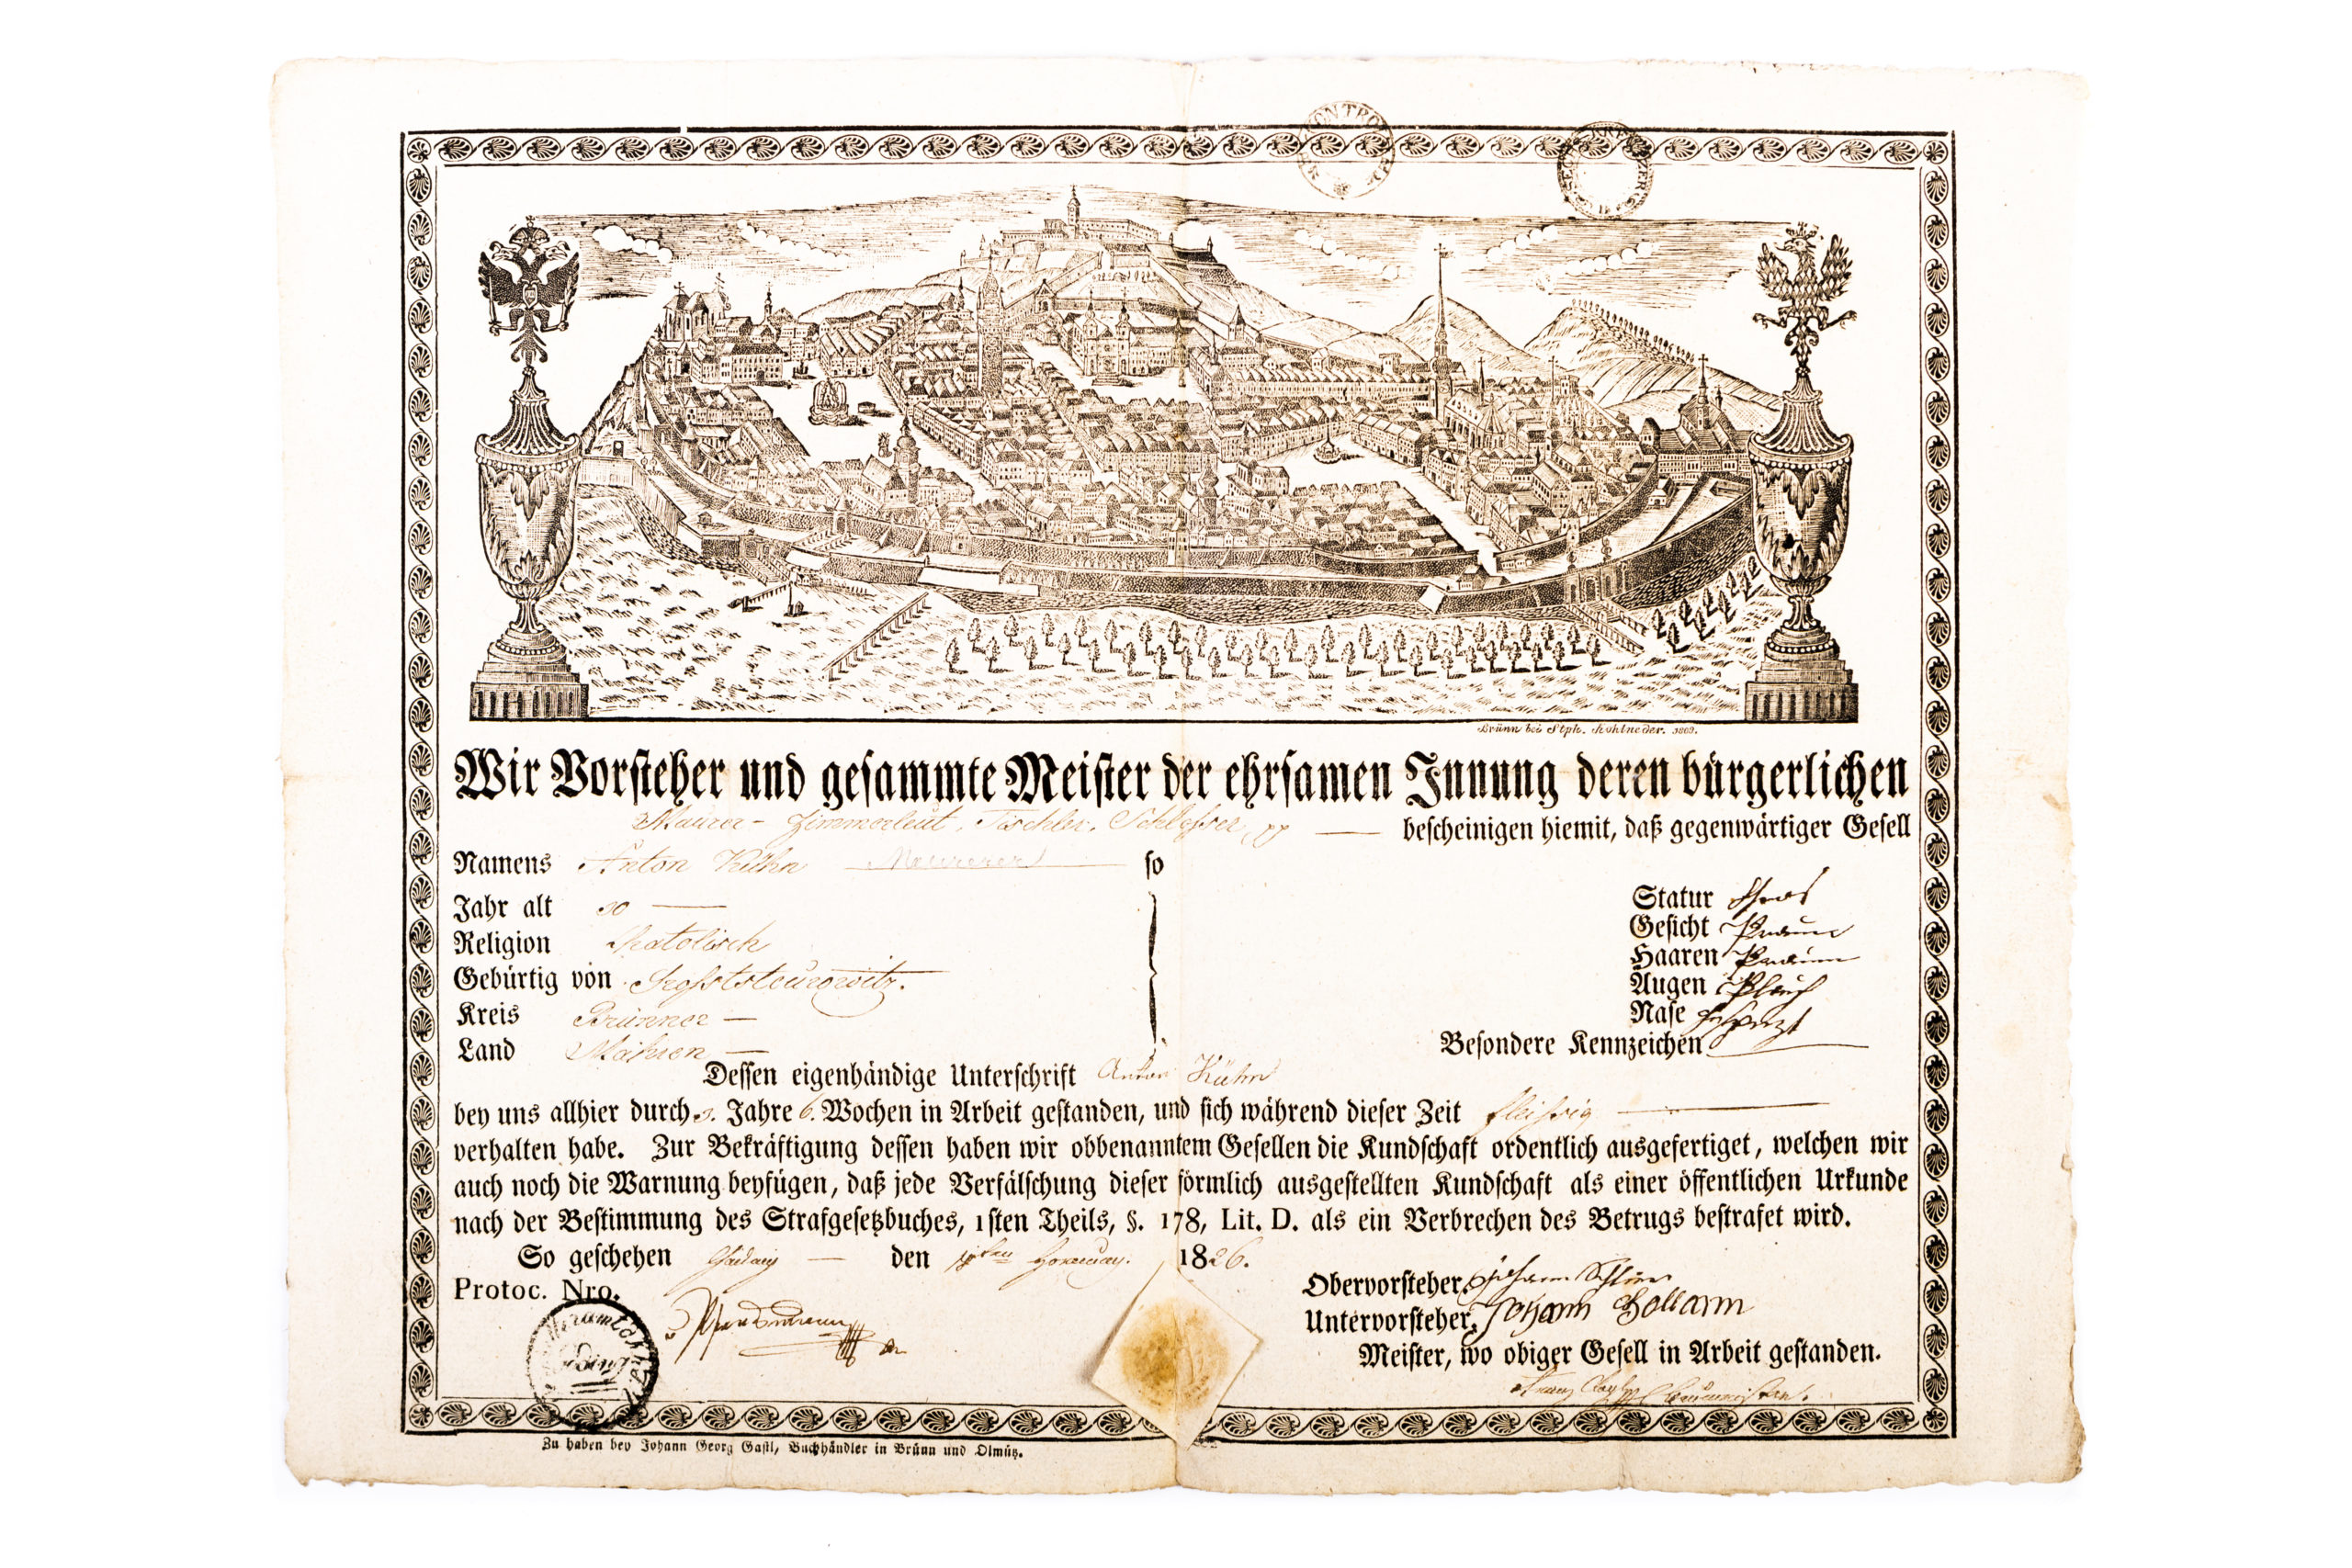 Brünn bei Stph. Kohlneder. 1802.
Wir Vorsteher und gesammte Meister der ehrsamen Innung deren bürgerlichen
Maurer - Zimmerleut, Tischler, Schlosser, bescheinigen hiemit, daß gegenwärtiger Gesell
Namens Anton Kühn so
Jahr alt 30
Religion Katolisch
Gebürtig von
Kreis Brünner
Land Mähren
Statur
Gesicht
Haaren
Augen
Nase
Besondere Kennzeichen
Dessen eigenhändige Unterschrift Anton Kühn
bey uns allhier durch Jahre 6. Wochen in Arbeit gestanden, und sich während dieser Zeit fleißig
verhalten habe. Zur Bekräftigung dessen haben wir obbenanntem Gesellen die Kundschaft ordentlich ausgefertiget, welchen wir
auch noch die Warnung beyfügen, daß jede Verfälschung dieser förmlich ausgestellten Kundschaft als einer öffentlichen Urkunde
nach der Bestimmung des Strafgesetzbuches, 1sten Theils, §. 178, Lit. D. als ein Verbrechen des Betrugs bestrafet wird.
So geschehen den 1826.
Protoc. Nro.
Obervorsteher Johann
Untervorsteher, Johann Hollarin
Meister, wo obiger Gesell in Arbeit gestanden.
Franz
Zu haben bey Johann Georg Gastl, Buchhändler in Brünn und Olmütz.